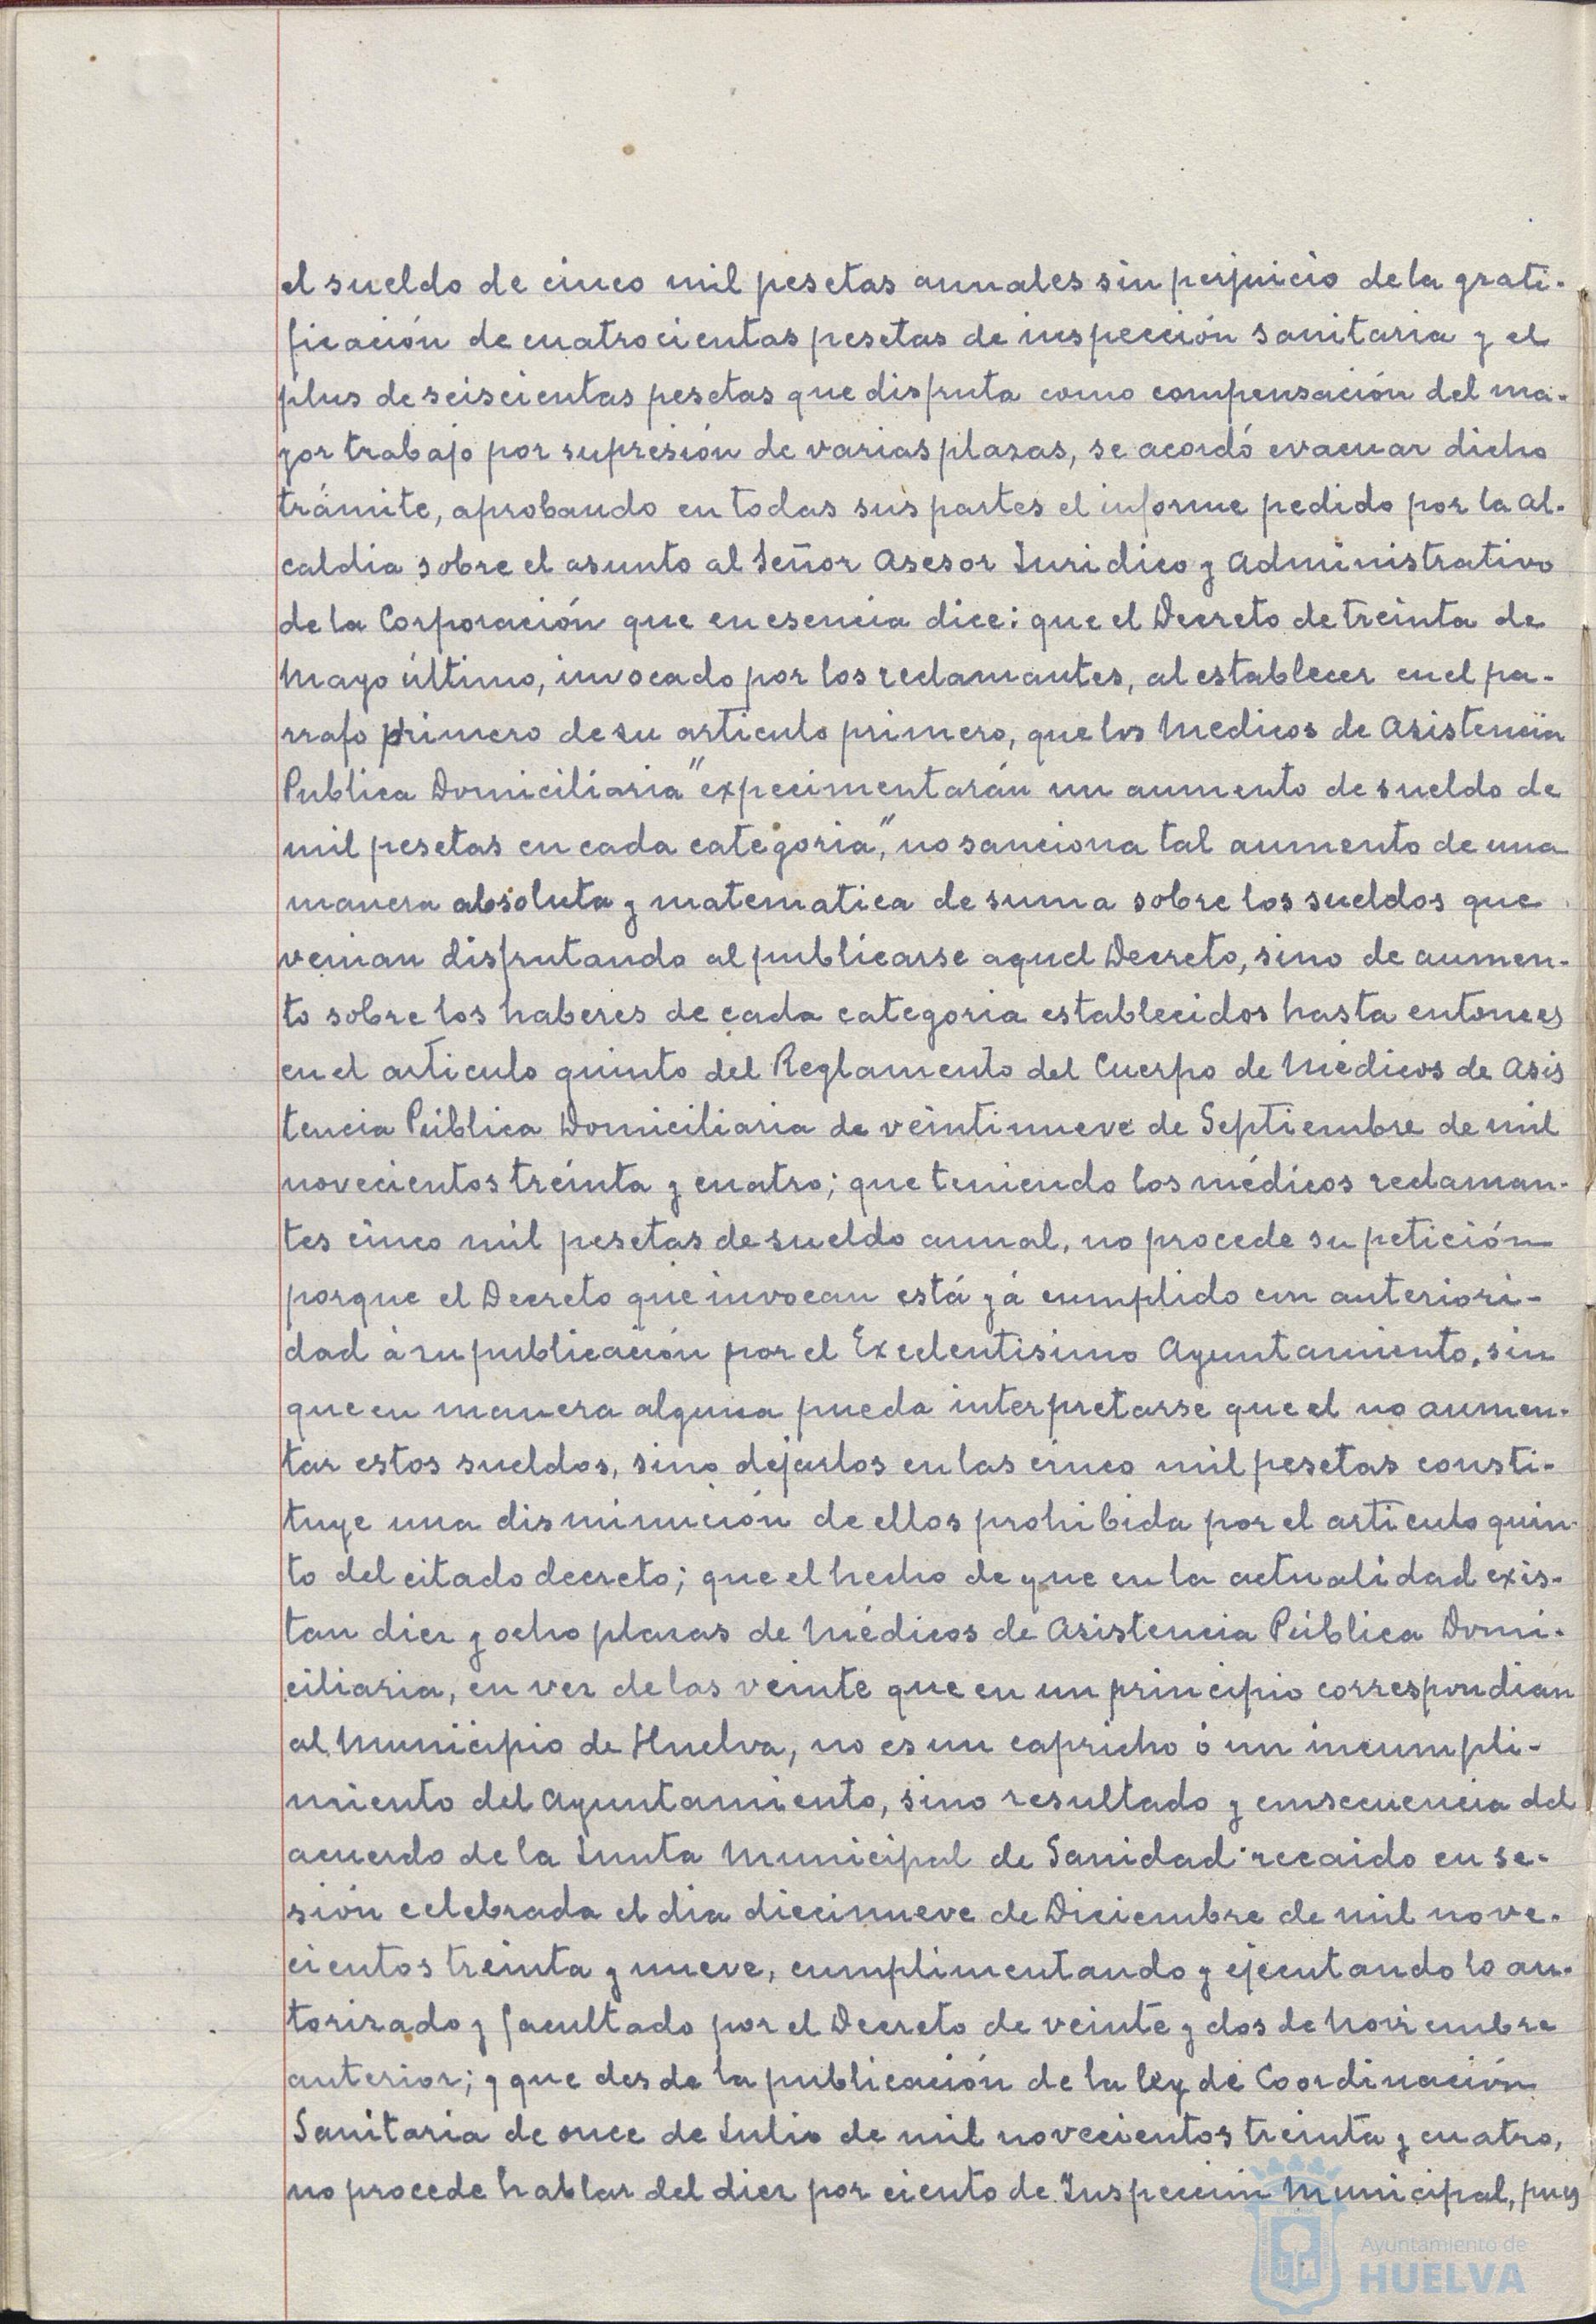 el sueldo de cinco mil pesetas anuales sin perjuicio de la grati-
ficación de cuatrocientas pesetas de inspección sanitaria y el
plus de seiscientas pesetas que disfruta como compensación del ma-
yor trabajo por supresión de varias plazas, se acordó evacuar dicho
trámite, aprobando en todas sus partes el informe pedido por la Al-
caldia sobre el asunto al Señor Asesor Juridico y Administrativo
de la Corporación que en esencia dice: que el Decreto de treinta de
Mayo último, invocado por los reclamantes, al establecer en el pa-
rrafo primero de su articulo primero, que los Medicos de Asistencia
Publica Domiciliaria "experimentarán un aumento de sueldo de
mil pesetas en cada categoria", no sanciona tal aumento de una
manera absoluta y matematica de suma sobre los sueldos que
venian disfrutando al publicarse aquel Decreto, sino de aumen-
to sobre los haberes de cada categoria establecidos hasta entonces
en el articulo quinto del Reglamento del Cuerpo de Médicos de Asis
tencia Pública Domiciliaria de veintinueve de Septiembre de mil
novecientos treinta y cuatro; que teniendo los médicos reclaman-
tes cinco mil pesetas de sueldo anual, no procede su petición
porque el Decreto que invocan está yá cumplido con anteriori-
dad á su publicación por el Excelentisimo Ayuntamiento, sin
que en manera alguna pueda interpretarse que el no aumen-
tar estos sueldos, sino dejarlos en las cinco mil pesetas consti-
tuye una disminución de ellos prohibida por el articulo quin-
to del citado decreto; que el hecho de que en la actualidad exis-
tan diez y ocho plazas de Médicos de Asistencia Pública Domi-
ciliaria, en vez de las veinte que en un principio correspondian
al Municipio de Huelva, no es un capricho ó un incumpli-
miento del Ayuntamiento, sino resultado y consecuencia del
acuerdo de la Junta Municipal de Sanidad recaido en se-
sión celebrada el dia diecinueve de Diciembre de mil nove-
cientos treinta y nueve, cumplimentando y ejecutando lo au-
torizado y facultado por el Decreto de veinte y dos de Noviembre
anterior; y que desde la publicación de la ley de Coordinación
Sanitaria de once de Julio de mil novecientos treinta y cuatro,
no procede hablar del diez por ciento de Inspección Municipal, pues
Ayuntamiento de
HUELVA